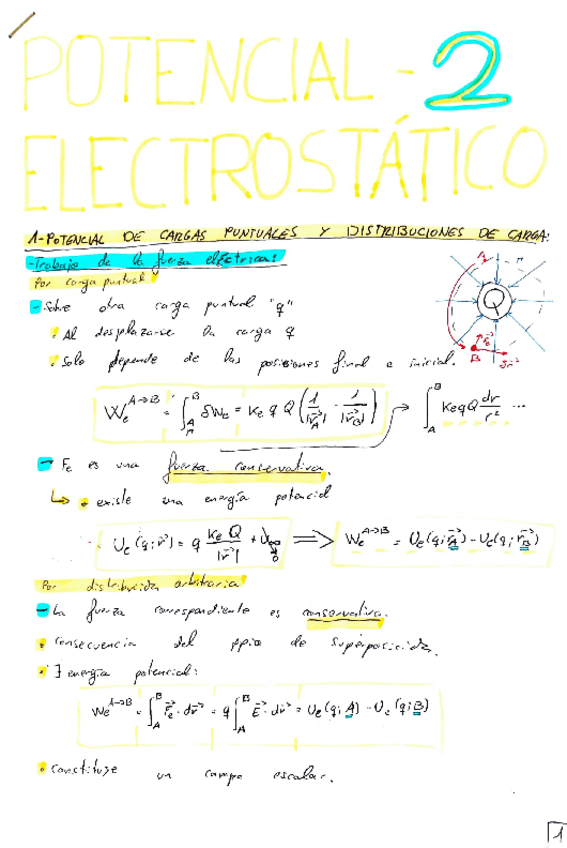 POTENCIAL - 2
ELECTROSTÁTICO
1-POTENCIAL DE CARGAS PUNTUALES Y DISTRIBUCIONES DE CARGA:
-Trabajo de la fuerza eléctrica:
Por carga puntual
- Sobre otra carga puntual "q"
• Al desplazarse la carga q
• Solo depende de las posiciones final e inicial.
A Q r⃗ B dr⃗
Wₑ^{A→B} = ∫_A^B δWₑ = Kₑ q Q (1/|r⃗_A| - 1/|r⃗_B|) → ∫_A^B Kₑ q Q dr/r² ...
- Fₑ es una fuerza conservativa.
↳ • existe una energía potencial
Uₑ(q; r⃗) = q KₑQ/|r⃗| + U∞ → 0 ⟹ Wₑ^{A→B} = Uₑ(q; r⃗_A) - Uₑ(q; r⃗_B)
Por distribución arbitraria
- La fuerza correspondiente es conservativa.
• consecuencia del ppio de superposición.
• ∃ energía potencial:
Wₑ^{A→B} = ∫_A^B F⃗ₑ · dr⃗ = q ∫_A^B E⃗ · dr⃗ = Uₑ(q; A) - Uₑ(q; B)
• constituye un campo escalar.
1